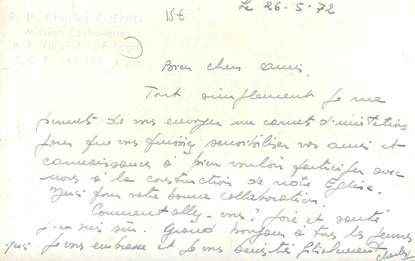 R. P. Charles CUENIN
Mission Catholique
15€
Le 26.5.72
Bien chers amis.
Tout simplement je me
permets de vous envoyer un carnet d'invitations
pour que vous puissiez sensibiliser vos amis et
connaissances à bien vouloir participer avec
nous à la construction de notre Eglise.
Merci pour votre bonne collaboration.
Comment allez-vous? Joie et santé
j'en suis sûr. Grand bonjour à tous les jeunes
je vous embrasse et je vous
Charles